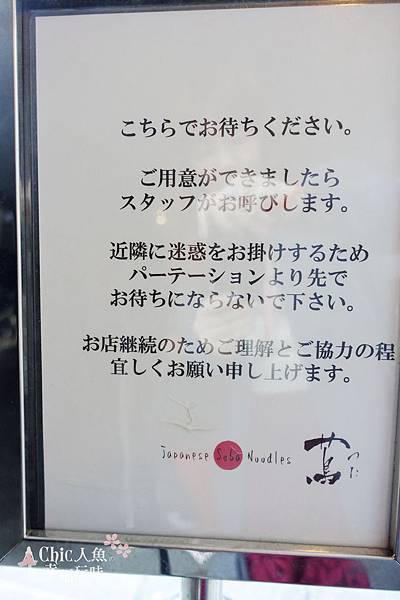 こちらでお待ちください。
ご用意ができましたら
スタッフがお呼びします。
近隣に迷惑をお掛けするため
パーテーションより先で
お待ちにならないで下さい。
お店継続のためご理解とご協力の程
宜しくお願い申し上げます。
Japanese Soba Noodles 蔦 つた
Chic人魚